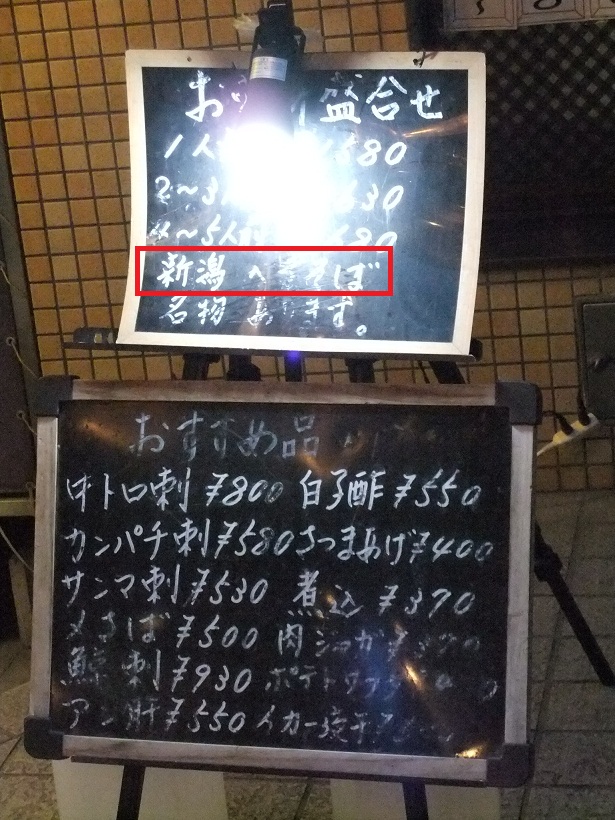 お 盛合せ
1人 580
2〜3 630
4〜5人
新潟へぎそば
名物あります。
おすすめ品
中トロ刺 ¥800 白子酢 ¥550
カンパチ刺 ¥580 さつまあげ ¥400
サンマ刺 ¥530 煮込 ¥370
〆さば ¥500 肉ジャガ
鯨刺 ¥930 ポテト
アン肝 ¥550 イカ一夜干